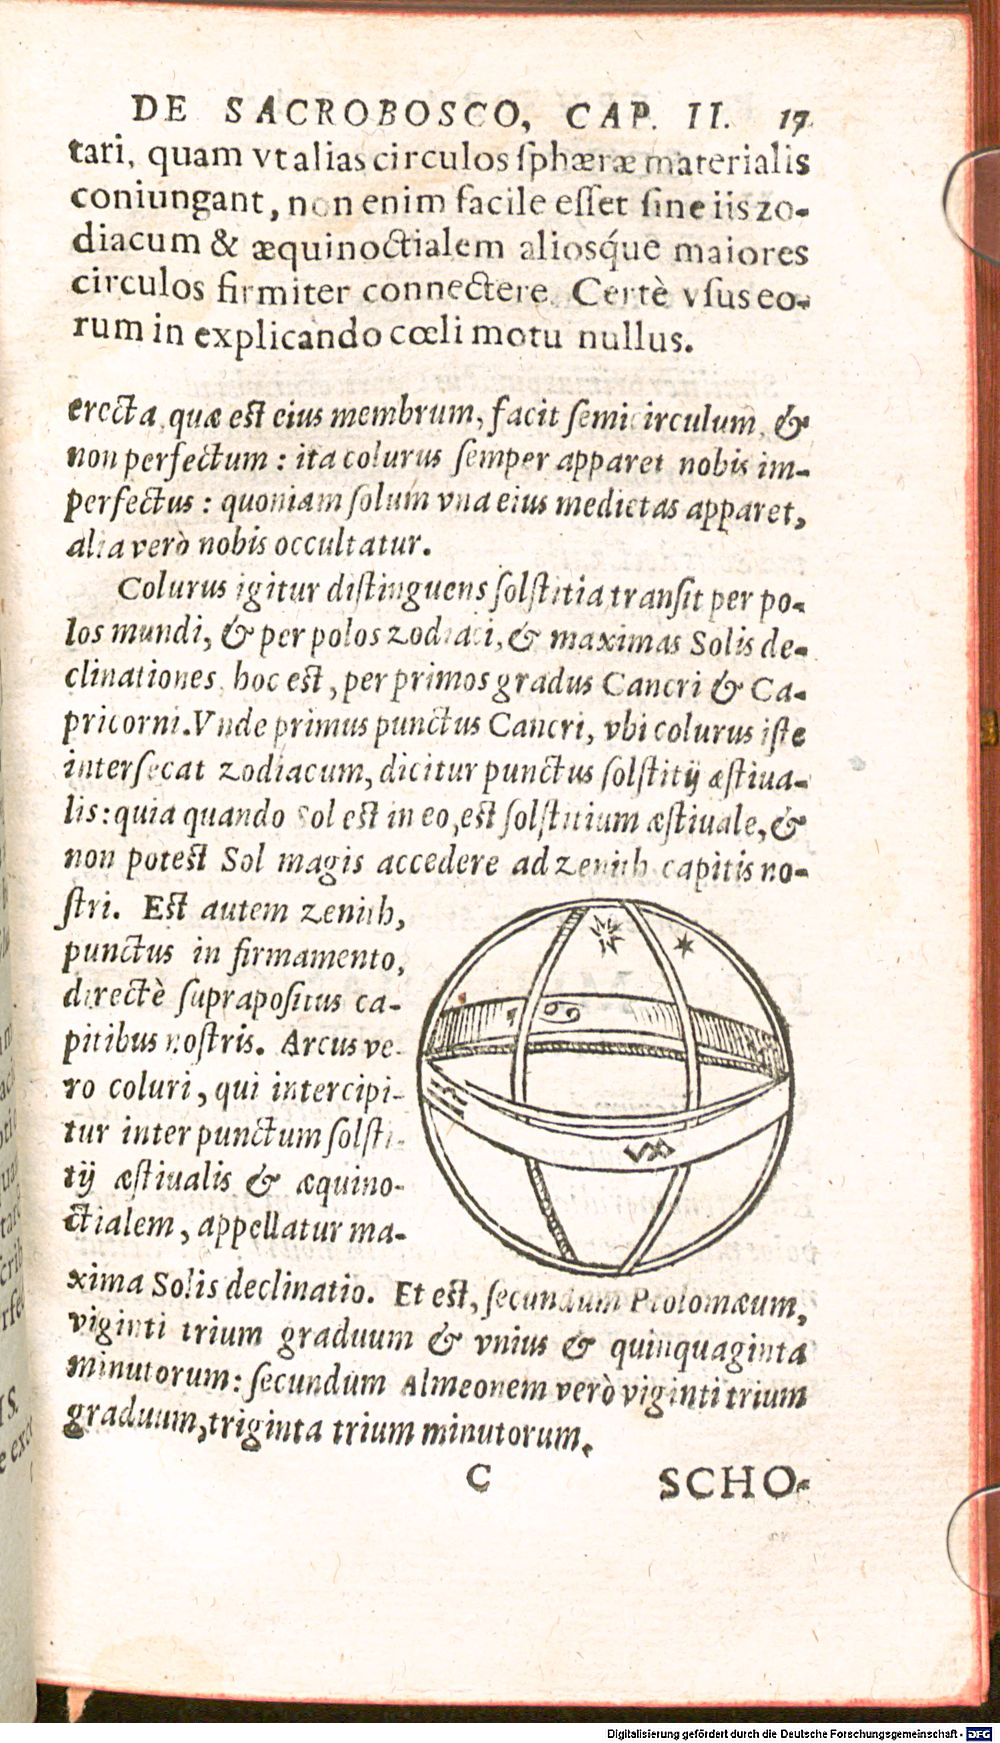 DE SACROBOSCO, CAP. II. 17
tari, quam vt alias circulos ſphæræ materialis
coniungant, non enim facile eſſet ſine iis zo-
diacum & æquinoctialem alioſq́ue maiores
circulos firmiter connectere. Certè vſus eo-
rum in explicando cœli motu nullus.
erecta, quæ eſt eius membrum, facit ſemicirculum, &
non perfectum : ita colurus ſemper apparet nobis im-
perfectus : quoniam ſolùm vna eius medietas apparet,
alia verò nobis occultatur.
Colurus igitur diſtinguens ſolſtitia tranſit per po-
los mundi, & per polos zodiaci, & maximas Solis de-
clinationes, hoc eſt, per primos gradus Cancri & Ca-
pricorni. Vnde primus punctus Cancri, vbi colurus iſte
interſecat zodiacum, dicitur punctus ſolſtitij æſtiua-
lis : quia quando Sol eſt in eo, eſt ſolſtitium æſtiuale, &
non poteſt Sol magis accedere ad zenith capitis no-
ſtri. Eſt autem zenith,
punctus in firmamento,
directè ſuprapoſitus ca-
pitibus noſtris. Arcus ve-
ro coluri, qui intercipi-
tur inter punctum ſolſti-
tij æſtiualis & æquino-
ctialem, appellatur ma-
♋
♑
xima Solis declinatio. Et eſt, ſecundum Ptolomæum,
viginti trium graduum & vnius & quinquaginta
minutorum : ſecundum Almeonem verò viginti trium
graduum, triginta trium minutorum.
C SCHO-
Digitalisierung gefördert durch die Deutsche Forschungsgemeinschaft - DFG